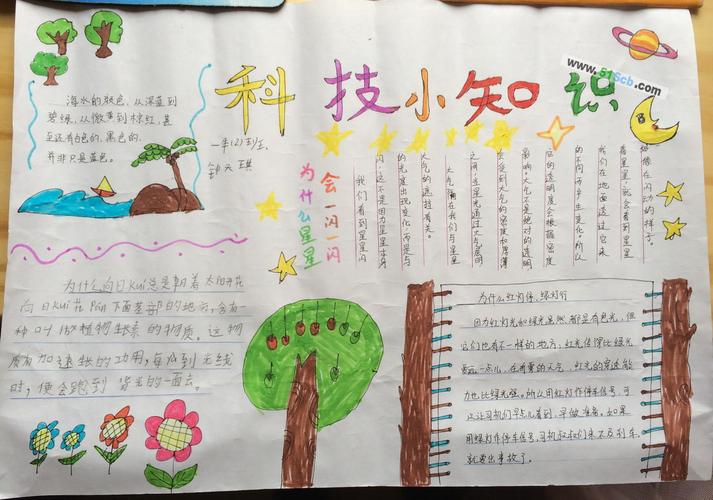 科技小知识
海水的颜色，从深蓝到
碧绿，从微黄到棕红，甚
至还有白色的、黑色的。
并非只是蓝色。
一年(2)班
钟天
为什么星星
会一闪一闪
我们看到星星闪
闪，这不是因为星星本身
的光度出现变化，而是与
大气的遮挡有关。
大气隔在我们与星星
之间，当星光通过大气层时
会受到大气的密度和厚薄
影响。大气不是绝对的透明
它的透明度会根据密度
的不同而产生变化。所以
我们在地面透过它来
看星星，就会看到星星
好像在闪动的样子。
为什么向日Kui总是朝着太阳开花
向日Kui花Pan下面茎部的地方，含有一
种叫做植物生长素的物质。这物
质有加速生长的功用，每遇到光线
时，便会跑到背光的一面去。
为什么红灯停、绿灯行
因为红灯光和绿灯光虽然都是有色光，但
它们也有不一样的地方，红光传得比绿光
更远一点儿，在有雾的天气，红光的穿透能
力也比绿光强。所以用红灯作停车信号，可
以让司机们早点儿看到，早做准备。如果
用绿灯作停车信号，司机叔叔们来不及刹车，
就要出事故了。